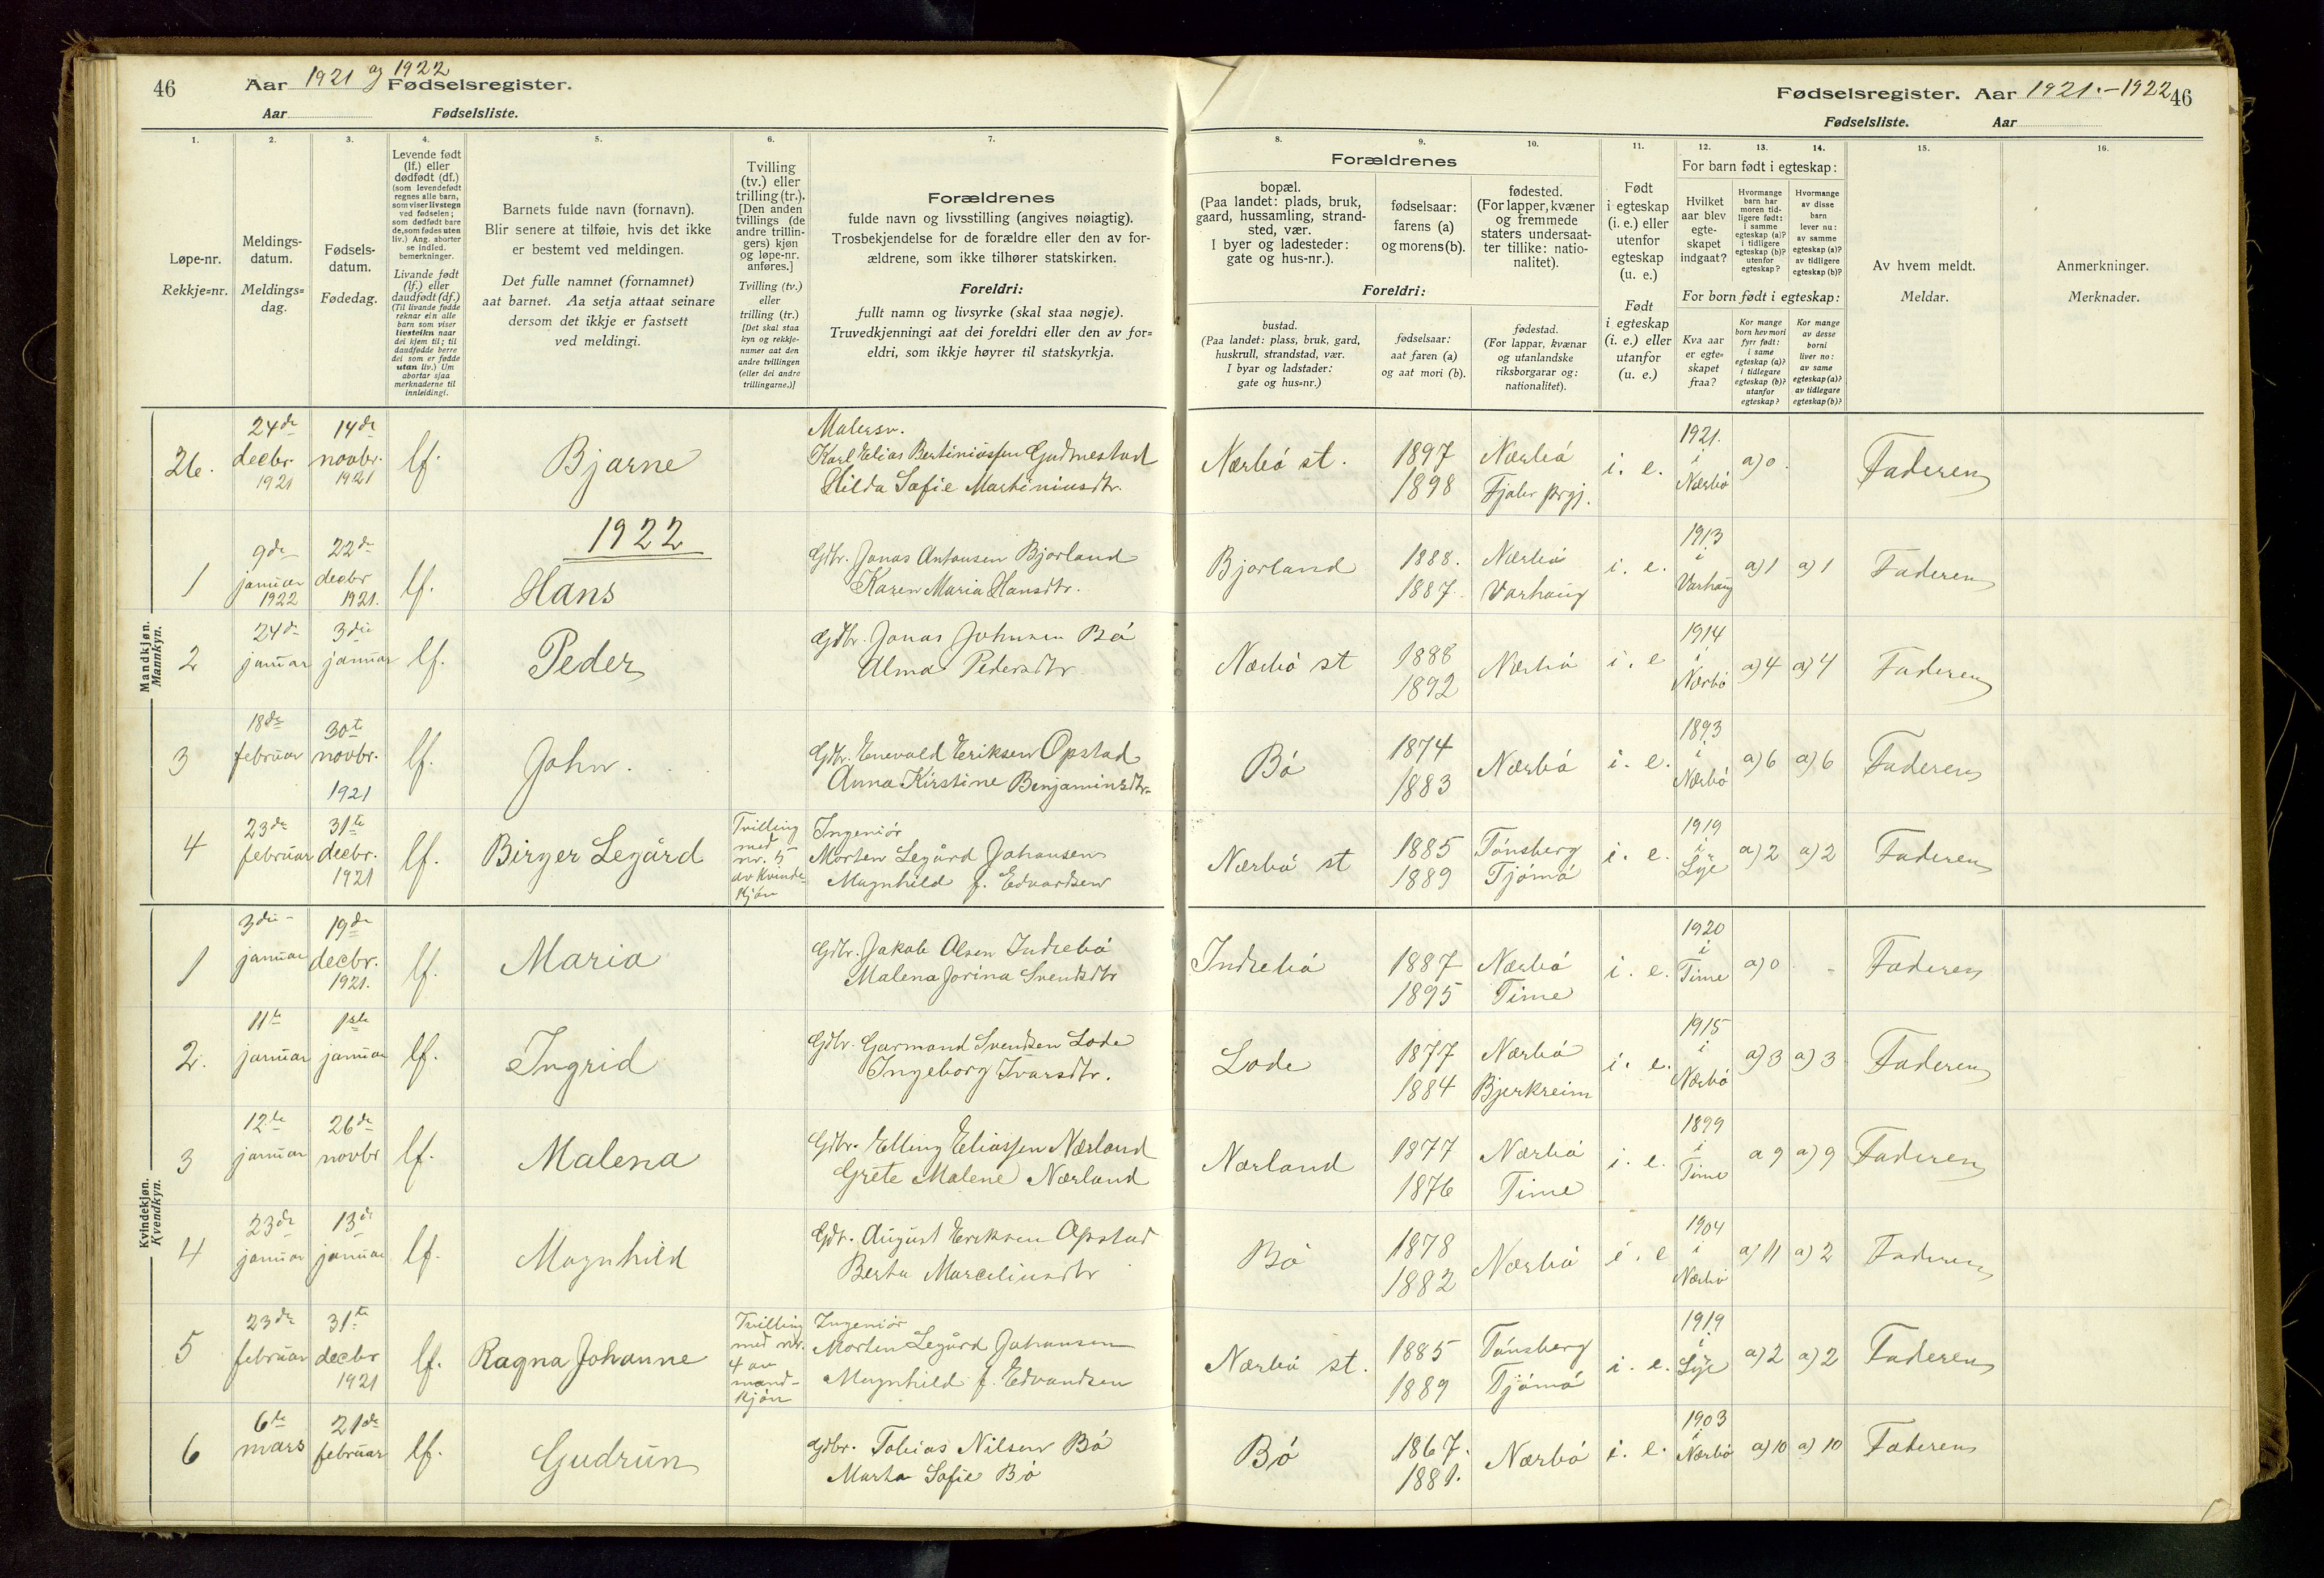 46
Aar 1921 og 1922
Fødselsregister.
Aar
Fødselsliste.
1.
2.
3.
4.
5.
6.
7.
Løpe-nr.
Rekkje=nr.
Meldings-
datum.
Meldings=
dag.
Fødsels-
datum.
Fødedag.
Levende født
(lf.) eller
dødfødt (df.)
(som levendefødt
regnes alle barn,
som viser livstegn
ved fødselen;
som dødfødt bare
de, som fødes uten
liv.) Ang. aborter
se indled.
bemerkninger.
Livande født
(lf.) eller
daudfødt (df.)
(Til livande fødde
reknar ein alle
barn som viser
livsteikn naar
dei kjem til; til
daudfødde berre
dei som er fødde
utan liv.) Um
abortar sjaa
merknaderne til
innleidingi.
Barnets fulde navn (fornavn).
Blir senere at tilføie, hvis det ikke
er bestemt ved meldingen.
Det fulle namnet (fornamnet)
aat barnet. Aa setja attaat seinare
dersom det ikkje er fastsett
ved meldingi.
Tvilling
(tv.) eller
trilling (tr.).
[Den anden
tvillings (de
andre trillin-
gers) kjøn
og løpe-nr.
anføres.]
Tvilling (tv.)
eller
trilling (tr.)
[Det skal staa
kyn og rekkje-
numer aat den
andre tvillingen
(eller dei andre
trillingarne.)]
Forældrenes
fulde navn og livsstilling (angives nøiagtig).
Trosbekjendelse for de forældre eller den av for-
ældrene, som ikke tilhører statskirken.
Foreldri:
fullt namn og livsyrke (skal staa nøgje).
Truvedkjenningi aat dei foreldri eller den av for=
eldri, som ikkje høyrer til statskyrkja.
Mandkjøn.
Mannkyn.
26. 24de decbr. 1921 14de novbr. 1921 lf. Bjarne
Malersv.
Karl Elias Bertiniussen Gudmestad
Hilda Sofie Martiniusdtr.
1922
1 9de januar 1922 22de decbr 1921. lf. Hans
Gdbr. Jonas Antonsen Bjorland
Karen Maria Hansdtr.
2 24de januar 3die januar lf. Peder
Gdbr. Jonas Johnsen Bö
Alma Pedersdtr
3 18de februar 30te novbr. 1921 lf. John.
Gdbr. Enevald Eriksen Opstad
Anna Kirstine Benjaminsdtr.
4 23de februar 31te decbr. 1921 lf. Birger Legård
Tvilling
med
nr. 5
av kvinde-
kjön
Ingeniör
Morten Legård Johansen
Magnhild f. Edvardsen
Kvindekjøn.
Kvendkyn.
1 3die januar 19de decbr. 1921. lf. Maria
Gdbr. Jakob Olsen Indrebö
Malena Jorina Svendsdtr
2. 11te januar 1ste januar lf. Ingrid
Gdbr. Garmand Svendsen Lode
Ingeborg Ivarsdtr.
3 12te januar 26de novbr lf. Malena
Gdbr. Elling Eliassen Nærland
Grete Malene Nærland
4 23de januar 13de januar lf. Magnhild
Gdbr. August Eriksen Opstad
Berta Marceliusdtr
5 23de februar 31te decbr 1921 lf. Ragna Johanne
Tvilling
med nr.
4 av
mand-
kjön
Ingeniör
Morten Legård Johansen
Magnhild f. Edvardsen
6 6de mars 21de februar lf. Gudrun
Gdbr. Tobias Nilsen Bö
Marta Sofie Bö
Fødselsregister. Aar 1921.-1922
46
Fødselsliste.
Aar
8.
9.
10.
11.
12.
13.
14.
15.
16.
Forældrenes
bopæl.
(Paa landet: plads, bruk,
gaard, hussamling, strand-
sted, vær.
I byer og ladesteder:
gate og hus-nr.).
fødselsaar:
farens (a)
og morens (b).
fødested.
(For lapper, kvæner
og fremmede
staters undersaat-
ter tillike: natio-
nalitet).
Foreldri:
bustad.
(Paa landet: plass, bruk, gard,
huskrull, strandstad, vær.
I byar og ladstader:
gate og hus=nr.)
fødselsaar:
aat faren (a)
og aat mori (b).
fødestad.
(For lappar, kvænar
og utanlandske
riksborgarar og:
nationalitet).
Født
i egteskap
(i. e.) eller
utenfor
egteskap
(u. e.)
Født
i egteskap
(i. e.) eller
utanfor
(u. e.)
For barn født i egteskap:
Hvilket
aar blev
egte-
skapet
indgaat?
Hvormange
barn har
moren tid-
ligere født:
i samme
egteskap (a)?
i tidligere
egteskap (b)?
utenfor
egteskap?
Hvormange
av disse
barn
lever nu:
av samme
egteskap (a)?
av tidligere
egteskap (b)?
For born født i egteskap:
Kva aar
er egte=
skapet
fraa?
Kor mange
born hev mori
fyrr født:
i same
egteskap (a)?
i tidlegare
egteskap (b)?
utanfor
egteskap?
Kor mange
av desse
borni
liver no:
av same
egteskap (a)?
av tidlegare
egteskap (b)?
Av hvem meldt.
Meldar.
Anmerkninger.
Merknader.
Nærbö st. 1897 1898 Nærbö Fjaler prgj. i. e. 1921. i Nærbö a) 0. Faderen
Bjorland 1888. 1887. Nærbö Varhaug i. e. 1913 i Varhaug a) 1 a) 1 Faderen
Nærbö st 1888 1892 Nærbö i. e 1914 i Nærbö a) 4 a) 4 Faderen
Bö 1874 1883 Nærbö i. e. 1893 i Nærbö a) 6 a) 6 Faderen
Nærbö st 1885 1889 Tönsberg Tjömö i. e. 1919 i Lye a) 2 a) 2 Faderen
Indrebö 1887 1895 Nærbö Time i. e. 1920 i Time a) 0 - Faderen
Lode 1877 1884 Nærbö Bjerkreim i. e. 1915 i Nærbö a) 3 a) 3 Faderen
Nærland 1877 1876 Nærbö Time i. e. 1899 i Time a 9 a) 9 Faderen
Bö 1878 1882 Nærbö i. e 1904 i Nærbö a) 11 a) 2 Faderen
Nærbö st. 1885 1889 Tönsberg Tjömö i. e. 1919 i Lye a) 2 a) 2 Faderen
Bö 1867. 1881. Nærbö i. e. 1903 i Nærbö a) 10 a) 10 Faderen